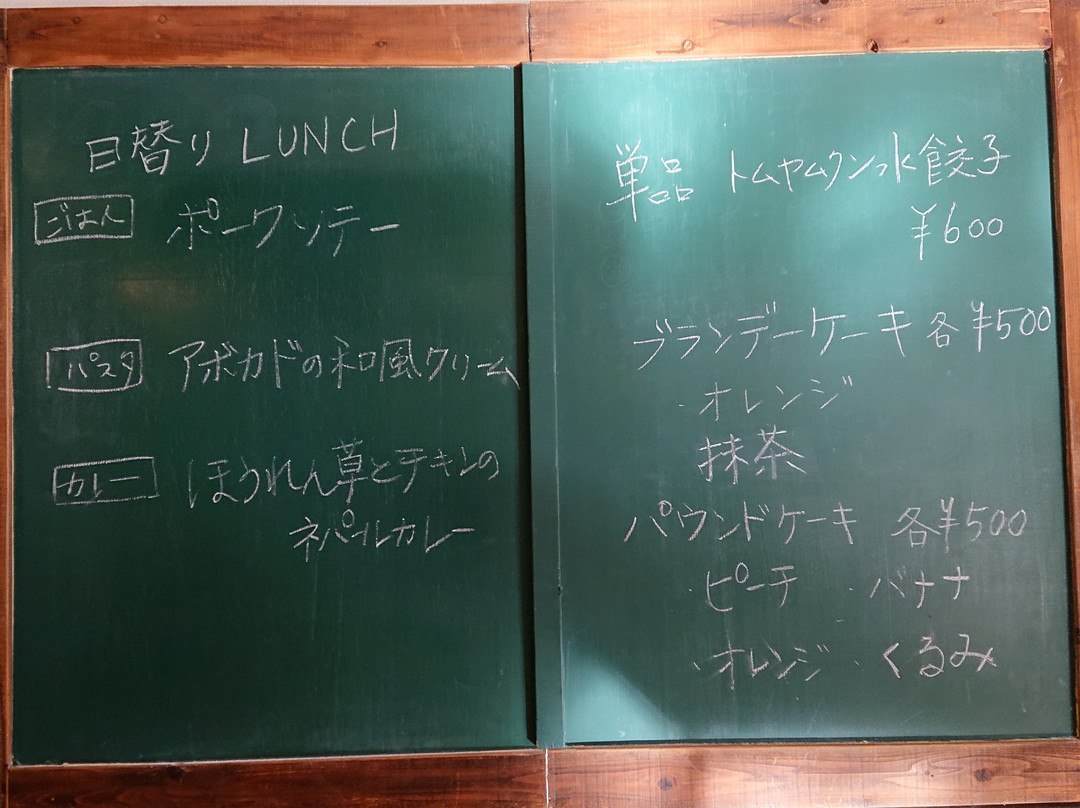 日替り LUNCH
ごはん ポークソテー
パスタ アボカドの和風クリーム
カレー ほうれん草とチキンの
ネパールカレー
単品 トムヤムクン水餃子
¥600
ブランデーケーキ 各¥500
・オレンジ
抹茶
パウンドケーキ 各¥500
・ピーチ ・バナナ
・オレンジ ・くるみ